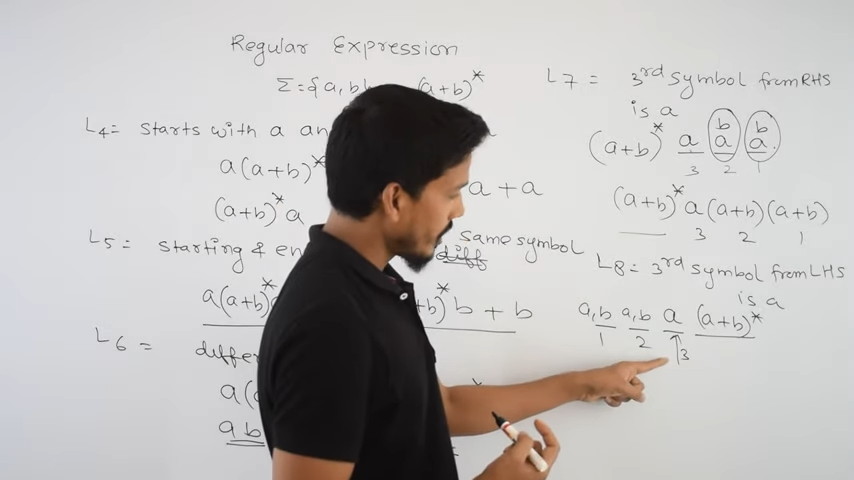 Regular Expression
Σ={a,b} (a+b)*
L4= starts with a an
a(a+b)*
(a+b)*a
a+a
L5= starting & en same symbol
diff
a(a+b)*
+b)*b + b
L6 =
differe
a(
ab
L7 = 3rd symbol from RHS
is a
b b
(a+b)* a a a
3 2 1
(a+b)* a(a+b)(a+b)
3 2 1
L8= 3rd symbol from LHS
is a
a,b a,b a (a+b)*
1 2 3